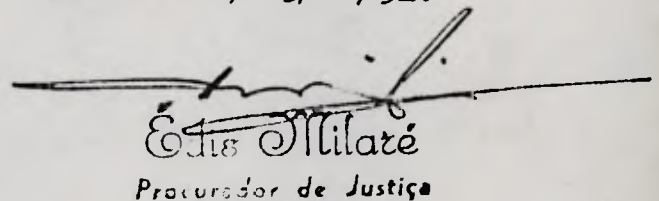 Édis Milaré
Procurador de Justiça